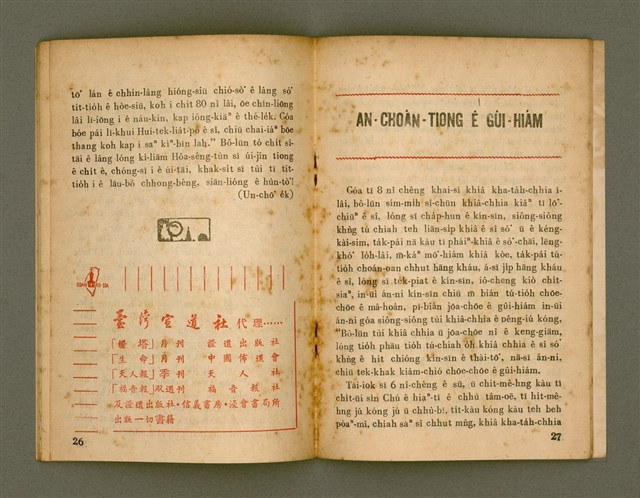 tó͘ lán ê chhin-lâng hióng-siū chió-sò͘ ê lâng só͘
tit-tio̍h ê hòe-siū, koh i chit 80 nî lâi, ōe chin-liōng
lâi lī-iōng i ê náu-kin, kap ióng-kiāⁿ ê thé-le̍k. Góa
bōe pái lí-khui Hui-tek-lia̍t-pó ê sí, chiū chai-iáⁿ bōe
thang koh kap i saⁿ kìⁿ-bīn lah." Bô-lūn tó chi̍t sî-
tāi ê lâng lóng kì-liām Hôa-sēng-tùn sī úi-jîn tiong
ê chi̍t ê, chóng-sī i ê úi-tāi, khak-si̍t sī tùi tī tit-
tio̍h i ê lāu-bó chhong-bêng, siān-liông ê hùn-tò!
(Un-chó͘ e̍k)
臺灣宣道社代理……
「燈塔」月刊 證道出版社
「生命」月刊 中國佈道會
「天人報」季刊 天人社
「福音報」双週刊 福音報社
及證道出版社・信義書房・浸會書局所
出版一切書籍
26
AN-CHOÂN-TIONG Ê GÛI-HIÁM
Góa tī 8 nî chêng khai-sí khiâ kha-ta̍h-chhia í-
lâi, bô-lūn sim-mih sî-chūn khiâ-chhia kiâⁿ tī lō͘-
chiūⁿ ê sî, lóng sī cha̍p-hun ê kín-sīn, siông-siông
khǹg tú chiah teh liān-si̍p khiâ ê sî só͘ ū ê kéng-
kài-sim, ta̍k-pái nā kàu tī pháiⁿ-khiâ ê só͘-chāi, lêng-
khó͘ lo̍h-lâi, m̄-káⁿ mō͘-hiám khiâ kòe, ta̍k-pái tú-
tio̍h choán-oan chhut hāng kháu, á-sī ji̍p hāng kháu
ê sî, lóng sī te̍k-piat ê kín-sīn, iô-cheng kiò chi̍t-
siaⁿ, in-ūi án-ni kín-sīn chiū m̄ bián tú-tio̍h chōe-
chōe ê mâ-hoân, pī-biān jōa-chōe ê gûi-hiám in-ūi
án-ni góa siông-siông tùi khiâ-chhia ê pêng-iú kóng,
"Bô-lūn tùi khiâ chhia ū jōa-chōe nî ê keng-giām,
lóng tio̍h pháu tio̍h tú-chiah o̍h khiâ chhia ê sî só͘
khǹg ê hit chióng kín-sīn ê thài-tō͘, nā-sī án-ni,
chiū tek-khak kiám-chió chōe-chōe ê gûi-hiám.
Tāi-iok sī 6 nî-chêng ê sū, ū chi̍t-mê-hng kàu tī
chi̍t-ūi sìn Chú ê hiaⁿ-tī ê chhù tâm-oē, tī hit-mê-
hng jú kóng jú ū chhù-bī, tit-kàu kóng kàu teh beh
pòaⁿ-mî, chiah saⁿ sî chhut mn̂g, khiâ kha-ta̍h-chhia
27